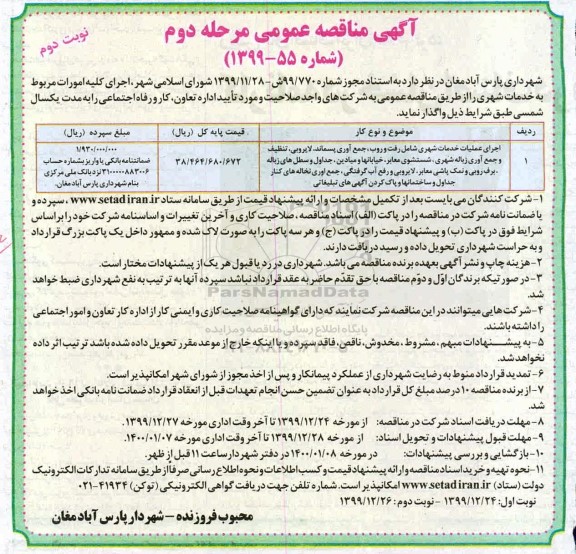 آگهی مناقصه عمومی مرحله دوم
نوبت دوم
(شماره ۵۵-۱۳۹۹)
شهرداری پارس آبادمغان در نظر دارد به استناد مجوز شماره ۹۹/۷۷۰ش-۱۳۹۹/۱۱/۲۸ شورای اسلامی شهر، اجرای کلیه امورات مربوط
به خدمات شهری را از طریق مناقصه عمومی به شرکت های واجد صلاحیت و مورد تأیید اداره تعاون، کار و رفاه اجتماعی را به مدت یکسال
شمسی طبق شرایط ذیل واگذار نماید.
ردیف موضوع و نوع کار قیمت پایه کل (ریال) مبلغ سپرده (ریال)
۱
اجرای عملیات خدمات شهری شامل رفت و روب، جمع آوری پسماند، لایروبی، تنظیف
و جمع آوری زباله شهری، شستشوی معابر، خیابانها و میادین، جداول و سطل های زباله
،برف روبی و نمک پاشی معابر، لایروبی و رفع آب گرفتگی، جمع آوری نخاله های کنار
جداول و ساختمانها و پاک کردن آگهی های تبلیغاتی
۳۸/۴۶۴/۶۸۰/۶۷۲
۱/۹۳۰/۰۰۰/۰۰۰
ضمانتنامه بانکی یا واریز بشماره حساب
۳۱۰۰۰۰۰۸۸۳۰۰۶ نزد بانک ملی مرکزی
بنام شهرداری پارس آبادمغان.
۱- شرکت کنندگان می بایست بعد از تکمیل مشخصات و ارائه پیشنهاد قیمت از طریق سامانه ستاد www.setadiran.ir ، سپرده و
یا ضمانت نامه شرکت در مناقصه را در پاکت (الف) اسناد مناقصه، صلاحیت کاری و آخرین تغییرات و اساسنامه شرکت خود را بر اساس
شرایط فوق در پاکت (ب) و پیشنهاد قیمت را در پاکت (ج) و هر سه پاکت را به صورت لاک شده و ممهور داخل یک پاکت بزرگ قرار داد
و به حراست شهرداری تحویل داده و رسید دریافت دارند.
۲- هزینه چاپ و نشر آگهی بعهده برنده مناقصه می باشد. شهرداری در رد یا قبول هر یک از پیشنهادات مختار است.
۳- در صورتیکه برندگان اول و دوم مناقصه با حق تقدم حاضر به عقد قرارداد نباشد سپرده آنها به ترتیب به نفع شهرداری ضبط خواهد
شد.
۴- شرکت هایی میتوانند در این مناقصه شرکت نمایند که دارای گواهینامه صلاحیت کاری و ایمنی کار از اداره کار تعاون و امور اجتماعی
را داشته باشند.
۵- به پیشنهادات مبهم، مشروط، مخدوش، ناقص، فاقد سپرده و یا اینکه خارج از موعد مقرر تحویل داده شده باشد ترتیب اثر داده
نخواهد شد.
۶- تمدید قرارداد منوط به رضایت شهرداری از عملکرد پیمانکار و پس از اخذ مجوز از شورای شهر امکانپذیر است.
۷- از برنده مناقصه ۱۰ درصد مبلغ کل قرارداد به عنوان تضمین حسن انجام تعهدات قبل از انعقاد قرارداد ضمانت نامه بانکی اخذ خواهد
شد.
۸- مهلت دریافت اسناد شرکت در مناقصه: از مورخه ۱۳۹۹/۱۲/۲۴ تا آخر وقت اداری مورخه ۱۳۹۹/۱۲/۲۷.
۹- مهلت قبول پیشنهادات و تحویل اسناد: از مورخه ۱۳۹۹/۱۲/۲۸ تا آخر وقت اداری مورخه ۱۴۰۰/۰۱/۰۷.
۱۰- بازگشایی و بررسی پیشنهادات: در مورخه ۱۴۰۰/۰۱/۰۸ در دفتر شهردار ساعت ۱۱ قبل از ظهر.
۱۱- نحوه تهیه و خرید اسناد مناقصه و ارائه پیشنهاد قیمت و کسب اطلاعات و نحوه اطلاع رسانی صرفاً از طریق سامانه تدارکات الکترونیک
دولت (ستاد) www.setadiran.ir امکانپذیر است. شماره تلفن جهت دریافت گواهی الکترونیکی (توکن) ۴۱۹۳۴-۰۲۱
نوبت اول: ۱۳۹۹/۱۲/۲۴ - نوبت دوم: ۱۳۹۹/۱۲/۲۶
محبوب فروزنده - شهردار پارس آبادمغان
ParsNamadData
پایگاه اطلاع رسانی مناقصه و مزایده